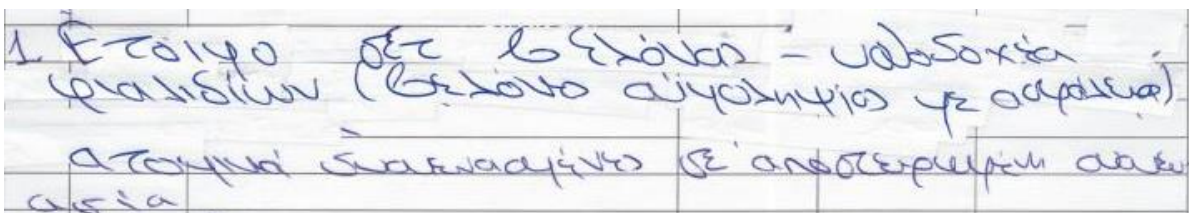 1. Ετοιμο σετ βελόνας - υποδοχέα
φιαλιδίων (βελόνα αιμοληψίας με ασφάλεια)
ατομικά συσκευασμένες σε αποστειρωμένη συσκευ
ασία